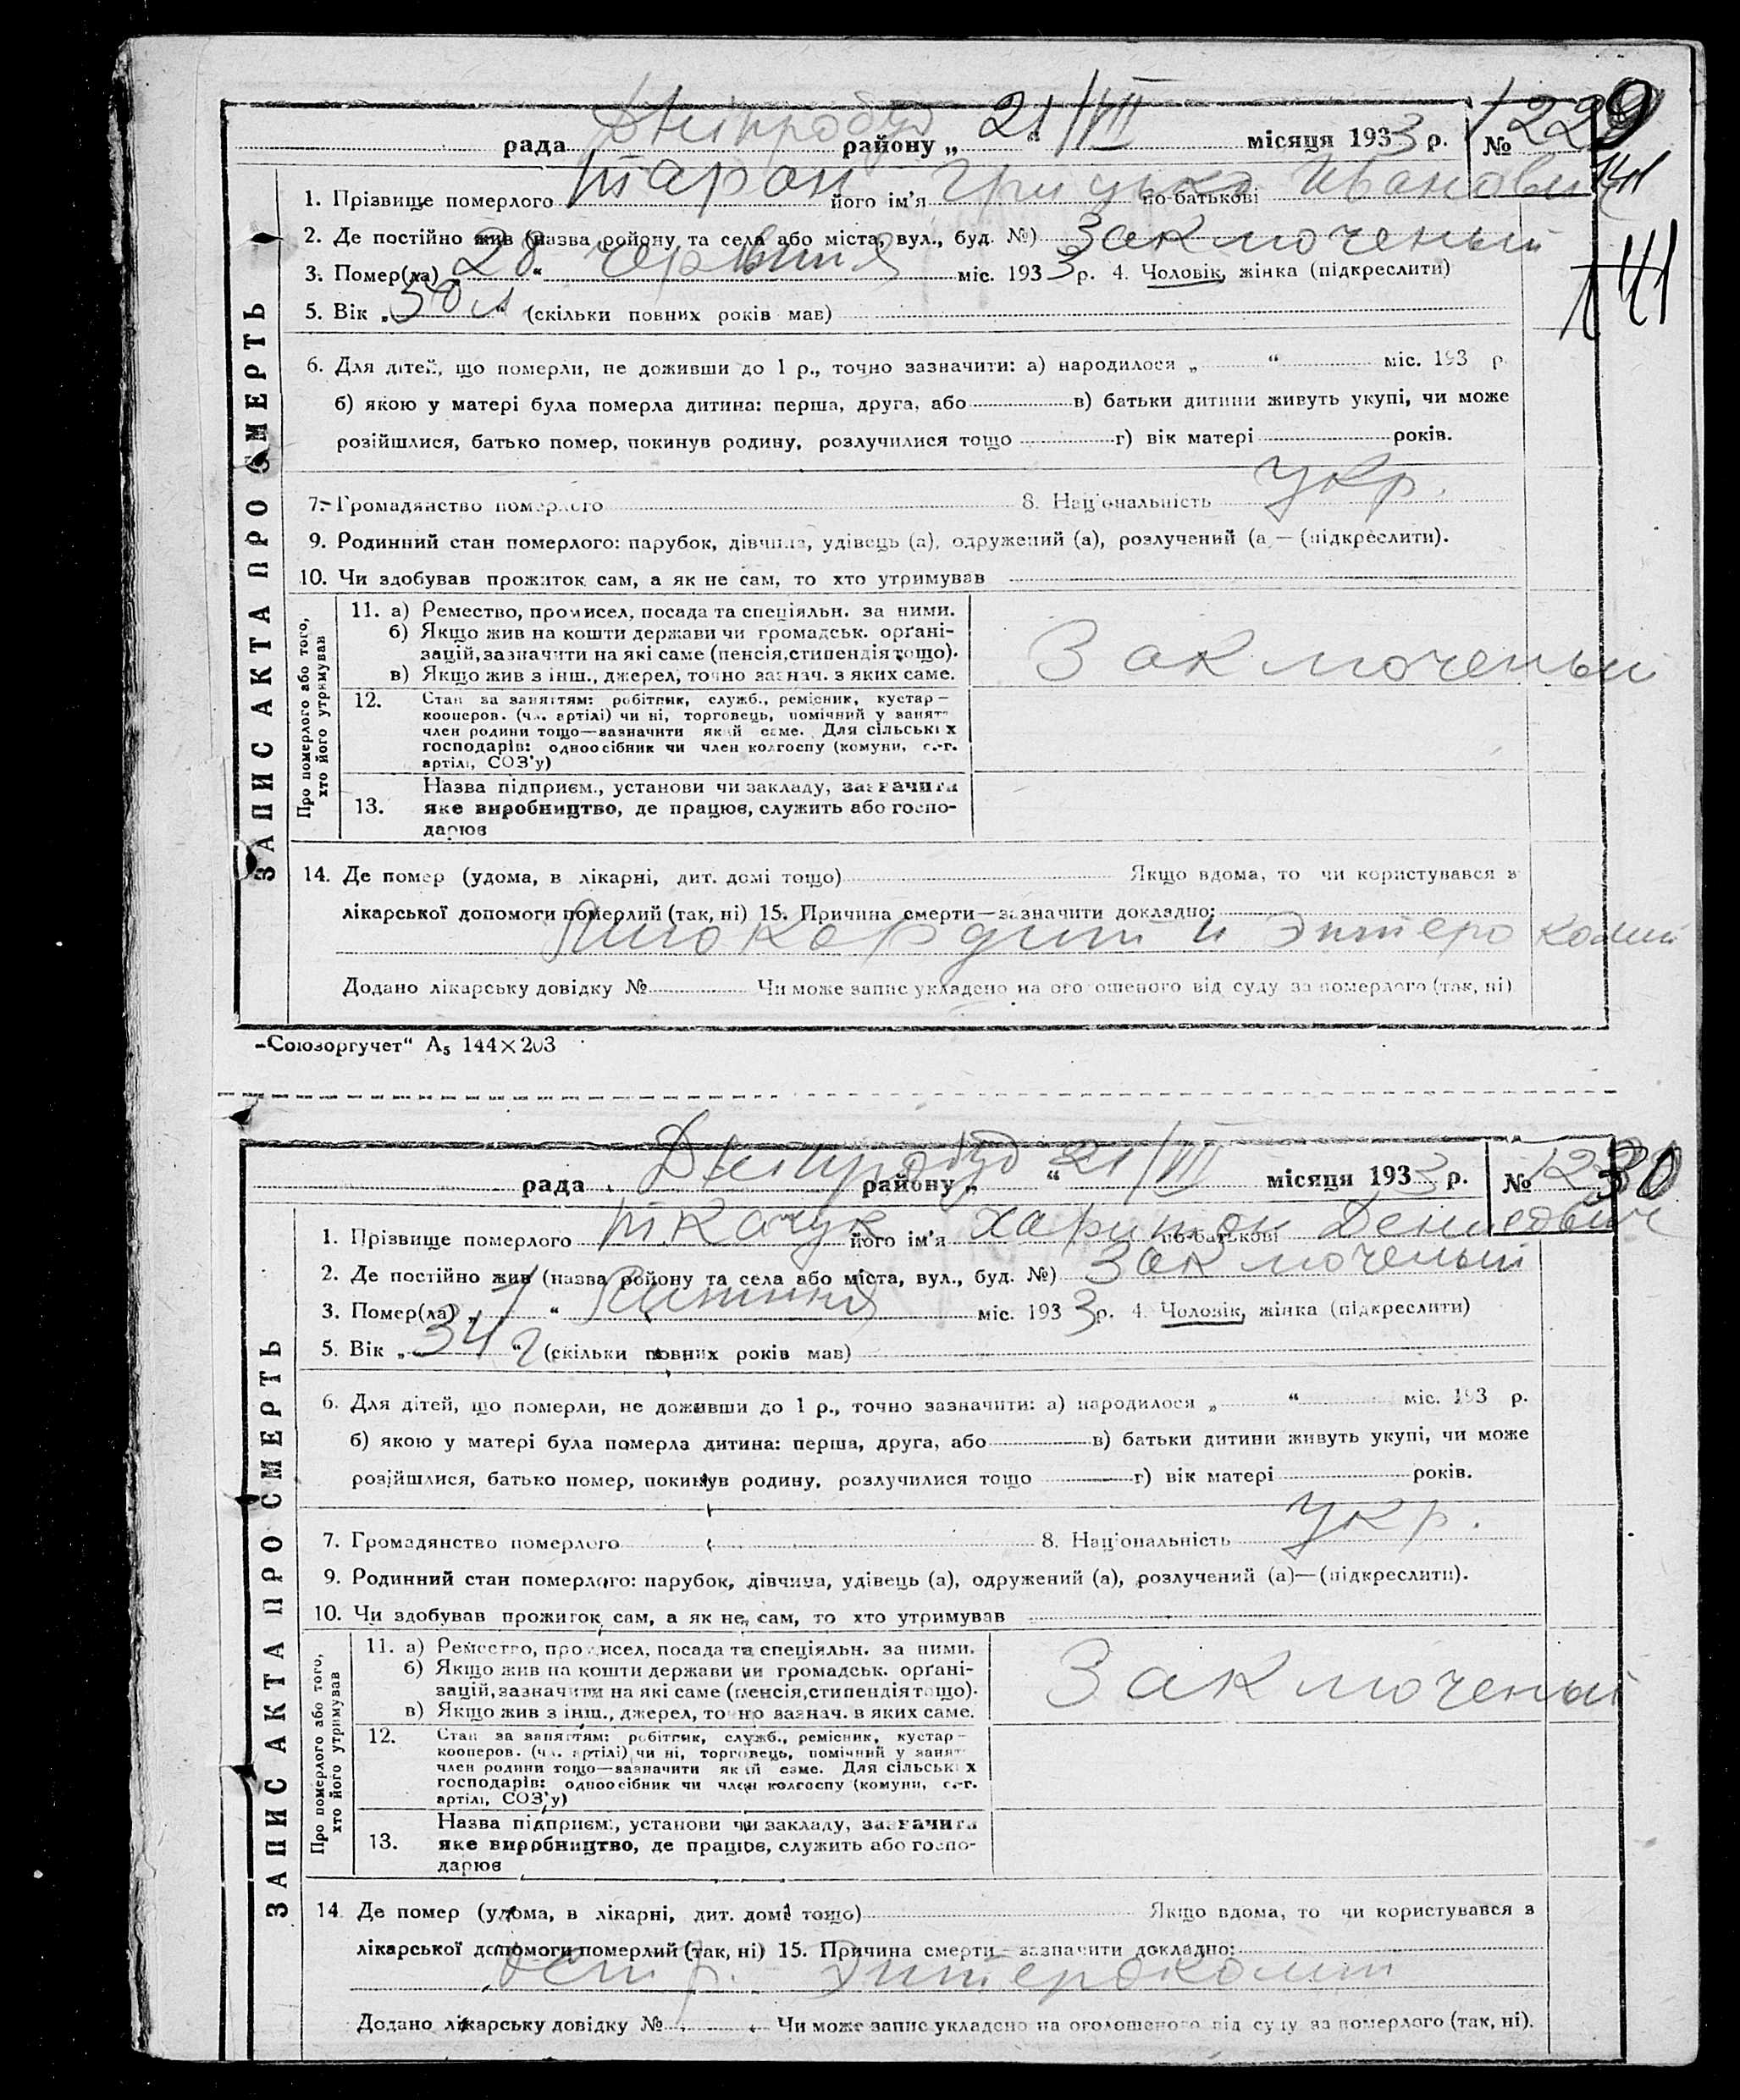 рада Дніпробуд району „ 21/VII “ місяця 1933 р. № 1229
141
1. Прізвище померлого Таран його ім'я Грицько по-батькові Иванович
2. Де постійно жив (назва ройону та села або міста, вул., буд. №) Заключеный
3. Помер(ла) „ 28 “ червння міс. 1933 р. 4. Чоловік, жінка (підкреслити)
141
5. Вік „ 50 л “ (скільки повних років мав)
6. Для дітей, що померли, не доживши до 1 р., точно зазначити: а) народилося „ “ міс. 193 р.
б) якою у матері була померла дитина: перша, друга, або в) батьки дитини живуть укупі, чи може
розійшлися, батько помер, покинув родину, розлучилися тощо г) вік матері років.
7. Громадянство померлого 8. Національність укр.
9. Родинний стан померлого: парубок, дівчина, удівець (а), одружений (а), розлучений (а)— (підкреслити).
10. Чи здобував прожиток сам, а як не сам, то хто утримував
ЗАПИС АКТА ПРО СМЕРТЬ
Про померлого або того,
хто його утримував
11. а) Ремество, промисел, посада та спеціяльн. за ними.
б) Якщо жив на кошти держави чи громадськ. орґані-
зацій, зазначити на які саме (пенсія, стипендія тощо).
в) Якщо жив з інш., джерел, точно зазнач. з яких саме.
Заключеный
12. Стан за заняттям: робітник, служб., ремісник, кустар—
кооперов. (чл. артілі) чи ні, торговець, помічний у занят-
член родини тощо—зазначити який саме. Для сільських
господарів: одноосібник чи член колгоспу (комуни, с.-г.
артілі, СОЗ'у)
13. Назва підприєм., установи чи закладу, зазначити
яке виробництво, де працює, служить або госпо-
дарює
14. Де помер (удома, в лікарні, дит. домі тощо) Якщо вдома, то чи користувався з
лікарської допомоги померлий (так, ні) 15. Причина смерти—зазначити докладно:
Миокардит и Энтероколит
Додано лікарську довідку № Чи може запис укладено на оголошеного від суду за померлого (так, ні)
„Союзоргучет“ А5 144×203
рада Дніпробуд району „ 21/VII “ місяця 1933 р. № 1230
1. Прізвище померлого Ткачук його ім'я Харитон по-батькові Денисович
2. Де постійно жив (назва ройону та села або міста, вул., буд. №) Заключеный
3. Помер(ла) „ 1 “ Липння міс. 1933 р. 4. Чоловік, жінка (підкреслити)
5. Вік „ 34 г “ (скільки повних років мав)
6. Для дітей, що померли, не доживши до 1 р., точно зазначити: а) народилося „ “ міс. 193 р.
б) якою у матері була померла дитина: перша, друга, або в) батьки дитини живуть укупі, чи може
розійшлися, батько помер, покинув родину, розлучилися тощо г) вік матері років.
7. Громадянство померлого 8. Національність укр.
9. Родинний стан померлого: парубок, дівчина, удівець (а), одружений (а), розлучений (а)—(підкреслити).
10. Чи здобував прожиток сам, а як не сам, то хто утримував
ЗАПИС АКТА ПРО СМЕРТЬ
Про померлого або того,
хто його утримував
11. а) Ремество, промисел, посада та спеціяльн. за ними.
б) Якщо жив на кошти держави чи громадськ. орґані-
зацій, зазначити на які саме (пенсія, стипендія тощо).
в) Якщо жив з інш., джерел, точно зазнач. в яких саме.
Заключеный
12. Стан за заняттям: робітник, служб., ремісник, кустар—
кооперов. (чл. артілі) чи ні, торговець, помічний у занят-
член родини тощо—зазначити який саме. Для сільських
господарів: одноосібник чи член колгоспу (комуни, с.-г.
артілі, СОЗ'у)
13. Назва підприєм., установи чи закладу, зазначити
яке виробництво, де працює, служить або госпо-
дарює
14 Де помер (удома, в лікарні, дит. домі тощо) Якщо вдома, то чи користувався з
лікарської допомоги померлий (так, ні) 15. Причина смерти—зазначити докладно:
Энтероколит
Додано лікарську довідку № Чи може запис укладено на оголошеного від суду за померлого (так, ні).